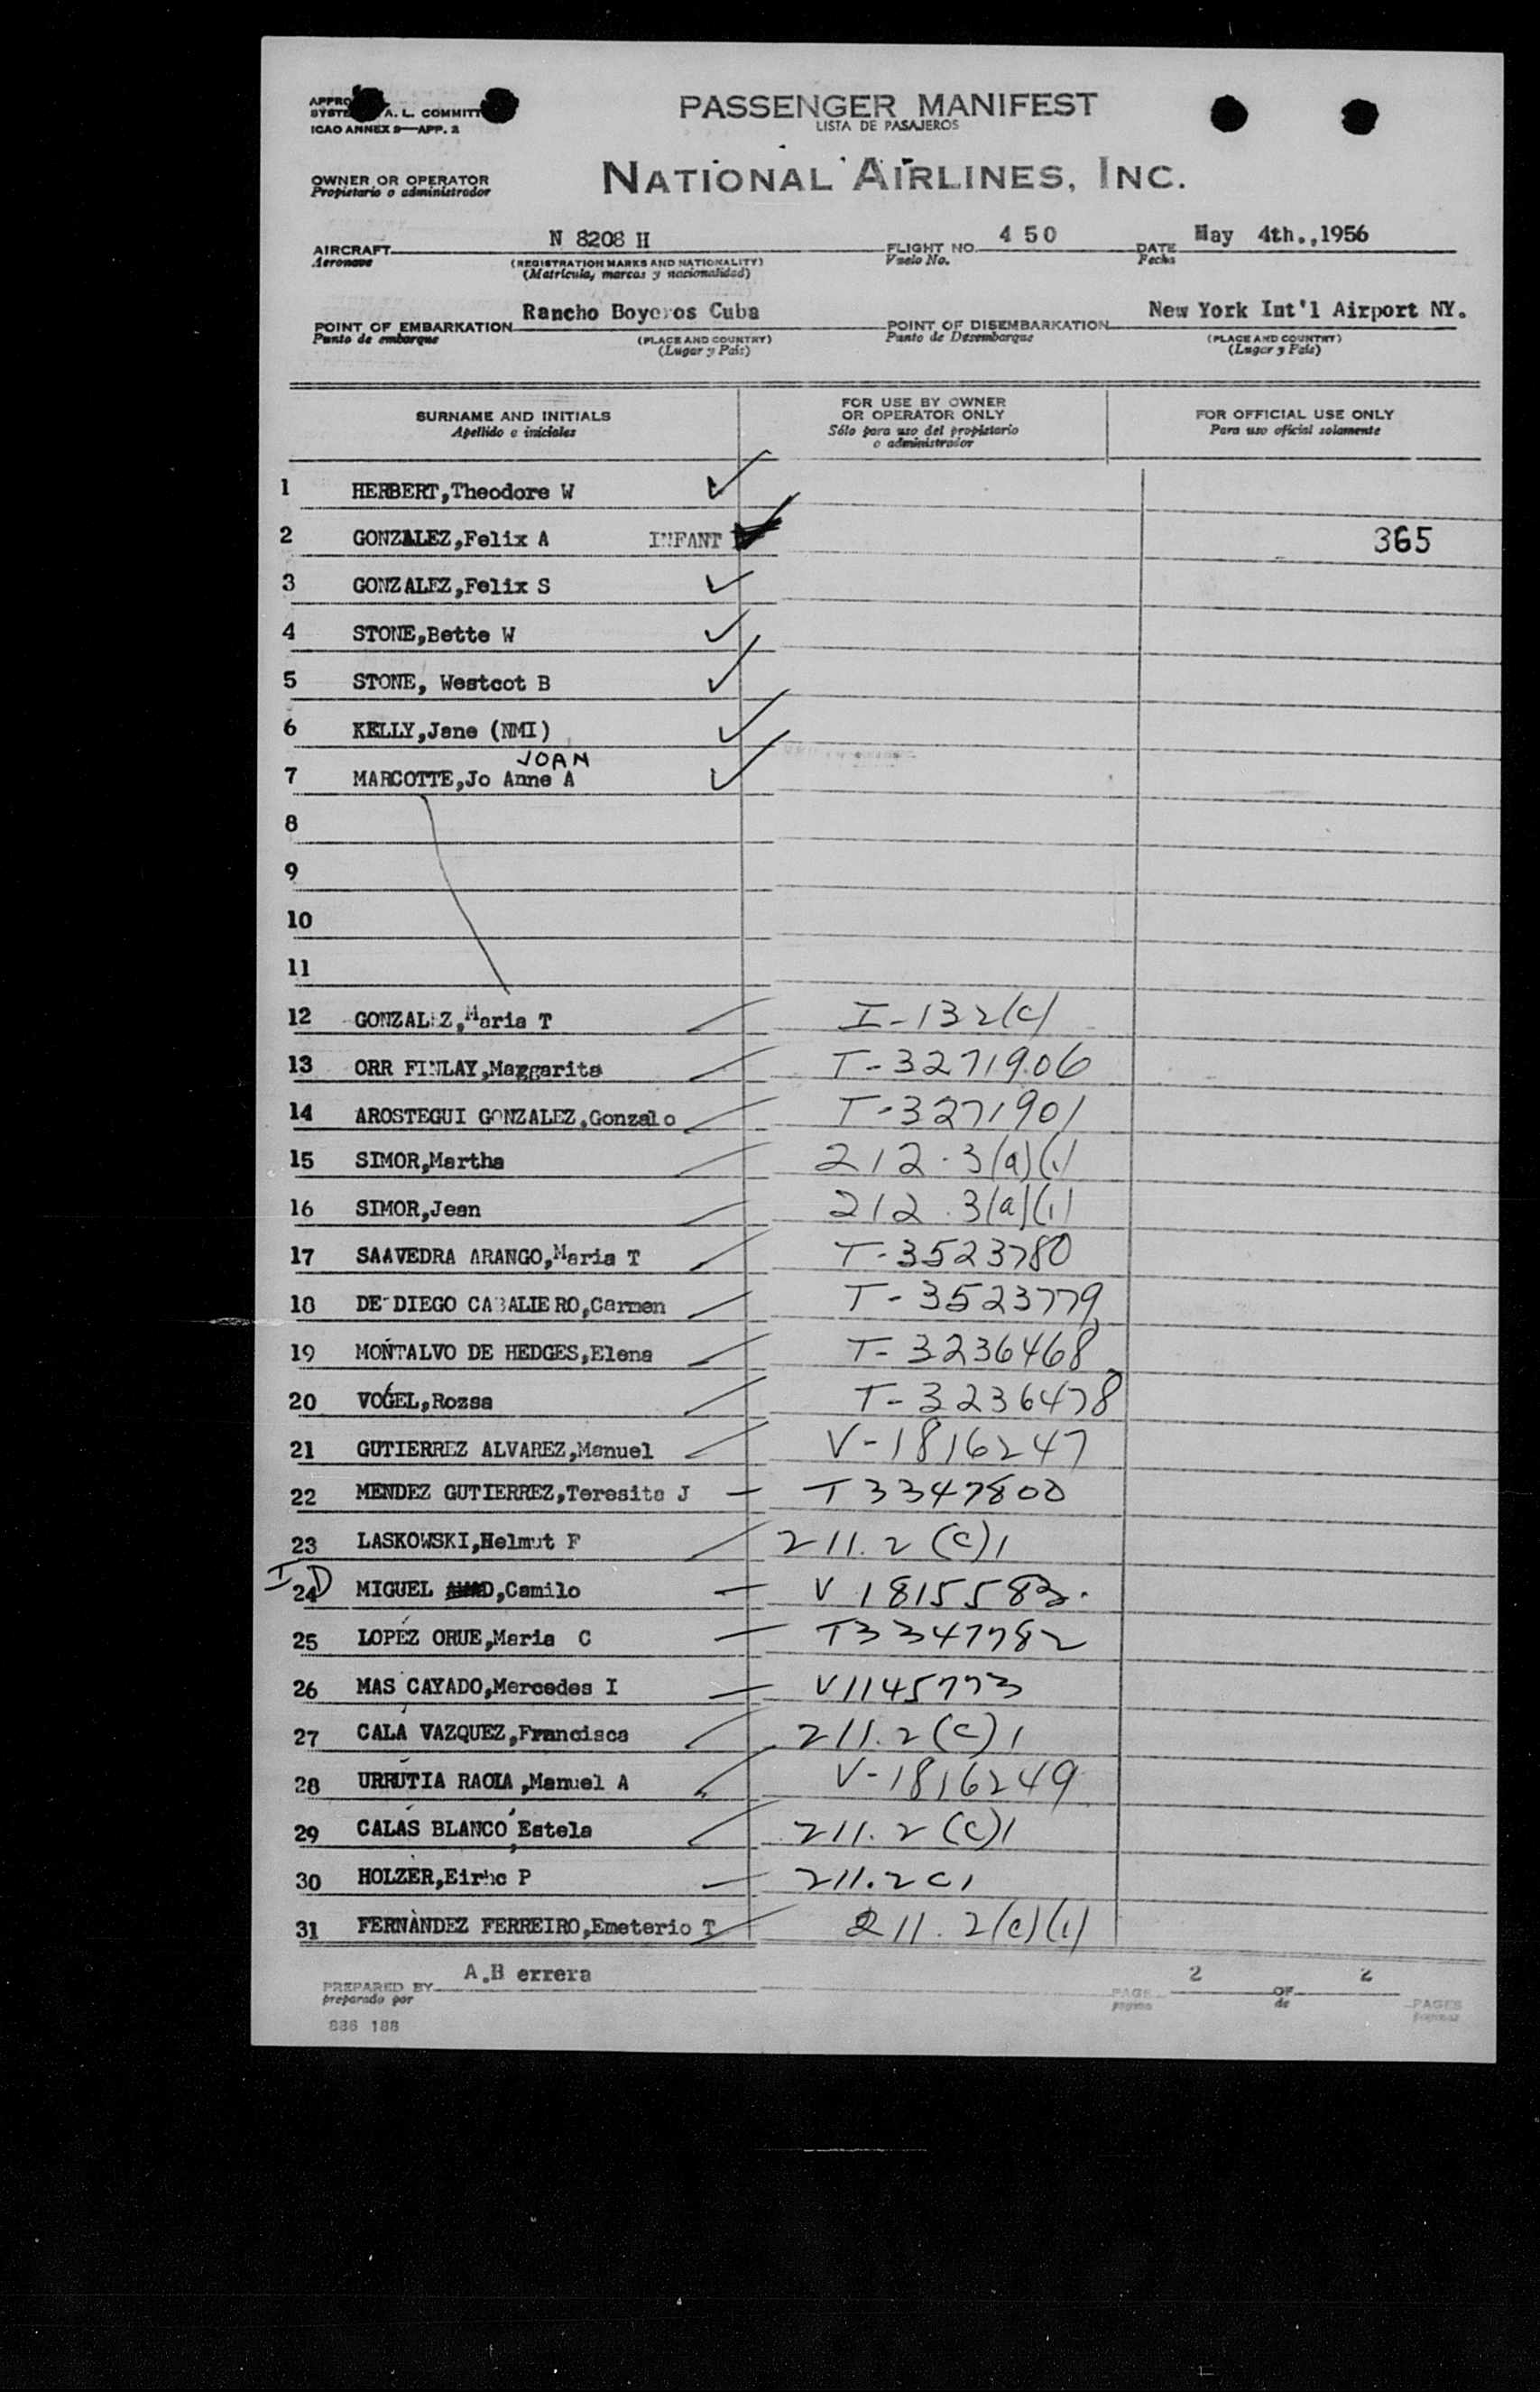 PASSENGER MANIFEST
LISTA DE PASAJEROS
A. L.
ICAO ANNEX 9—APP. 2
OWNER OR OPERATOR
Propietario o administrador
NATIONAL AIRLINES, INC.
AIRCRAFT N 8208 H FLIGHT NO. 4 5 0 DATE May 4th.,1956
Aeronave (REGISTRATION MARKS AND NATIONALITY) Vuelo No. Fecha
(Matricula, marcas y nacionalidad)
POINT OF EMBARKATION Rancho Boyeros Cuba POINT OF DISEMBARKATION New York Int'l Airport NY.
Punto de embarque (PLACE AND COUNTRY) Punto de Desembarque (PLACE AND COUNTRY)
(Lugar y Pais) (Lugar y Pais)
SURNAME AND INITIALS FOR USE BY OWNER OR OPERATOR ONLY FOR OFFICIAL USE ONLY
Apellido e iniciales Sólo para uso del propietario o administrador Para uso oficial solamente
1 HERBERT,Theodore W
2 GONZALEZ,Felix A INFANT 365
3 GONZALEZ,Felix S
4 STONE,Bette W
5 STONE, Westcot B
6 KELLY,Jane (NMI)
JOAN
7 MARCOTTE,Jo Anne A
8
9
10
11
12 GONZALEZ,Maria T I-132(c)
13 ORR FINLAY,Maggarita T-3271906
14 AROSTEGUI GONZALEZ,Gonzalo T-3271901
15 SIMOR,Martha 212.3(a)(1)
16 SIMOR,Jean 212.3(a)(1)
17 SAAVEDRA ARANGO,Maria T T-3523780
18 DE DIEGO CABALIERO,Carmen T-3523779
19 MONTALVO DE HEDGES,Elena T-3236468
20 VOGEL,Rozsa T-3236478
21 GUTIERREZ ALVAREZ,Manuel V-1816247
22 MENDEZ GUTIERREZ,Teresita J T3347800
23 LASKOWSKI,Helmut F 211.2(c)1
I D
24 MIGUEL ,Camilo V 1815583.
25 LOPEZ ORUE,Maria C T3347782
26 MAS CAYADO,Mercedes I V1145773
27 CALA VAZQUEZ,Francisca 211.2(c)1
28 URRUTIA ,Manuel A V-1816249
29 CALAS BLANCO,Estela 211.2(c)1
30 HOLZER, P 211.2c1
31 FERNANDEZ FERREIRO,Emeterio T 211.2(c)(1)
PREPARED BY A.B errera PAGE 2 OF 2 PAGES
preparado por pagina de paginas
886 188